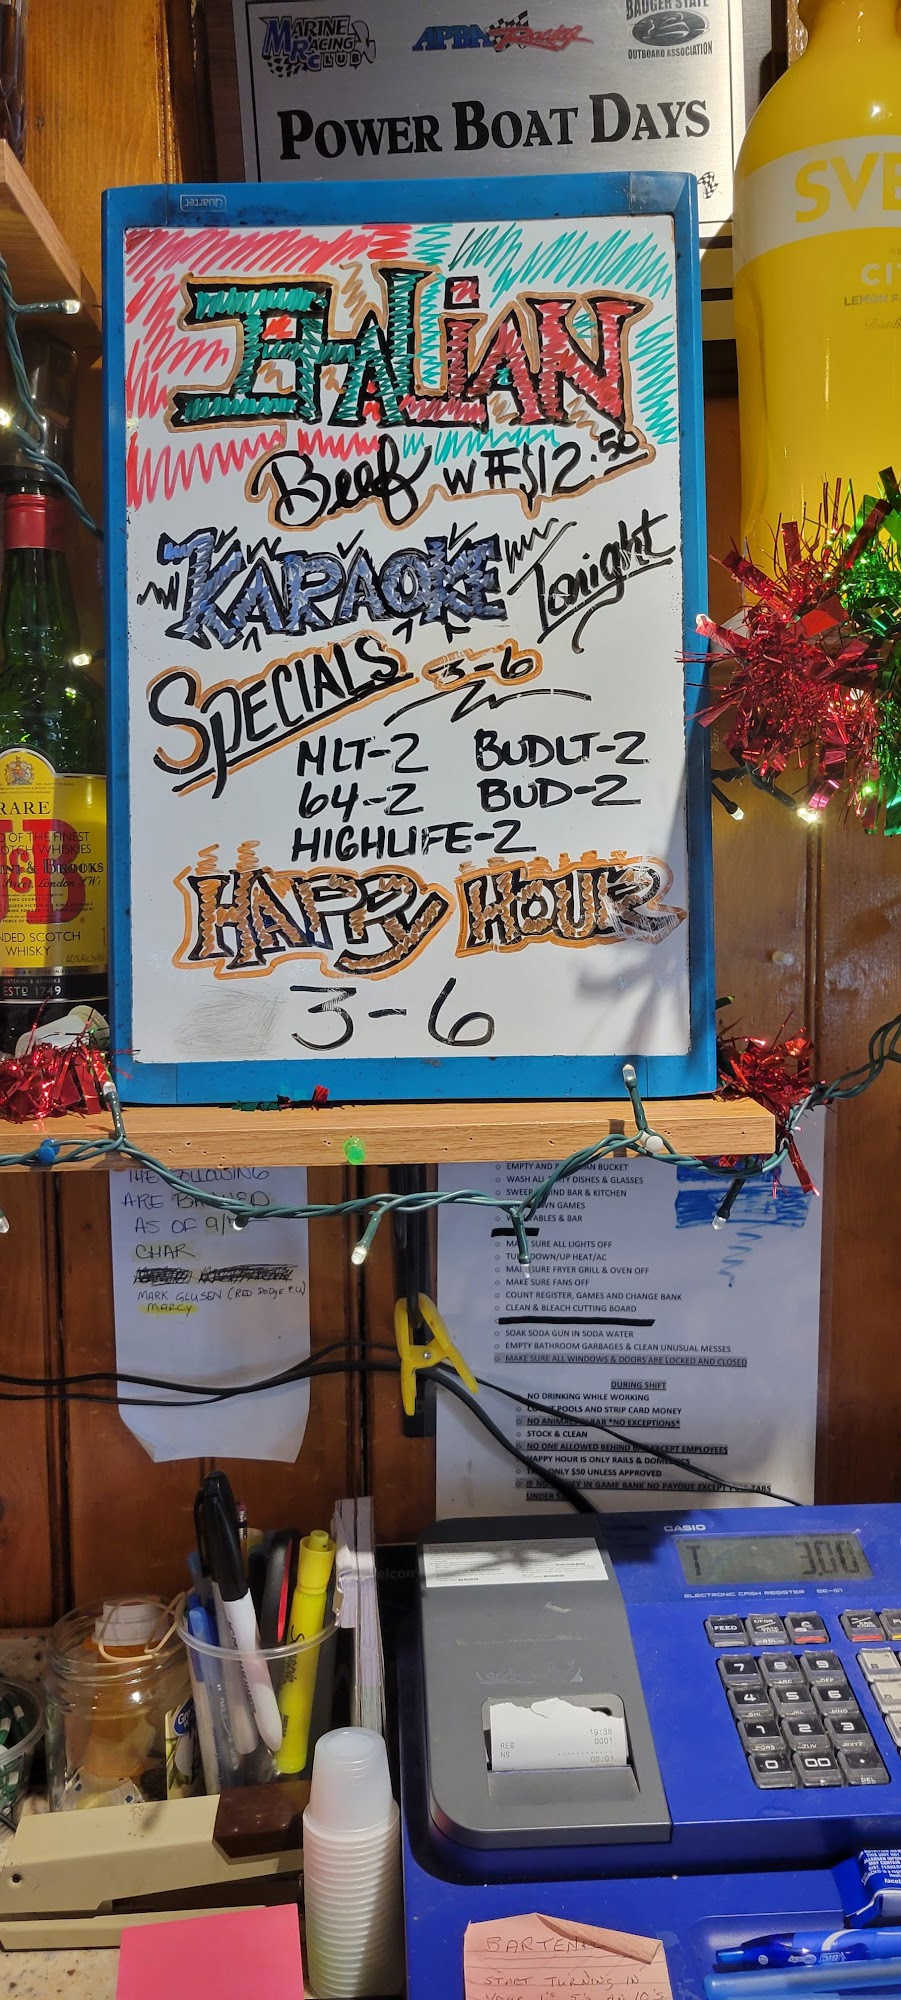 MARINE
RACING
CLUB
APBA Racing
BADGER STATE
OUTBOARD ASSOCIATION
POWER BOAT DAYS
Quartet
SVE
CIT
ITALIAN
Beef W FF $12.50
KARAOKE Tonight
SPECIALS 3-6
MLT-2 BUDLT-2
64-2 BUD-2
HIGHLIFE-2
HAPPY HOUR
3-6
RARE
BROOKS
WHISKY
ESTD 1749
THE FOLLOWING
ARE BANNED
AS OF 9/
CHAR
MARK GLUSEN (RED DODGE P.U)
MARCY
EMPTY AND BUCKET
WASH ALL DISHES & GLASSES
SWEEP BEHIND BAR & KITCHEN
GAMES
& BAR
MAKE SURE ALL LIGHTS OFF
TURN DOWN/UP HEAT/AC
MAKE SURE FRYER GRILL & OVEN OFF
MAKE SURE FANS OFF
COUNT REGISTER, GAMES AND CHANGE BANK
CLEAN & BLEACH CUTTING BOARD
SOAK SODA GUN IN SODA WATER
EMPTY BATHROOM GARBAGES & CLEAN UNUSUAL MESSES
MAKE SURE ALL WINDOWS & DOORS ARE LOCKED AND CLOSED
DURING SHIFT
NO DRINKING WHILE WORKING
COUNT POOLS AND STRIP CARD MONEY
NO ANIMALS BAR *NO EXCEPTIONS*
STOCK & CLEAN
NO ONE ALLOWED BEHIND BAR EXCEPT EMPLOYEES
HAPPY HOUR IS ONLY RAILS & DOMESTICS
ONLY $50 UNLESS APPROVED
IF NO MONEY IN GAME BANK NO PAYOUT EXCEPT TABS
UNDER
CASIO
T 3.00
ELECTRONIC CASH REGISTER SE-G1
FEED
7 8 9
4 5 6
1 2 3
0 00 .
19:38
REG 0001
NS 00:01
BARTEN
START TURNING IN
YOUR 1'S 5'S AN 10'S
BIC